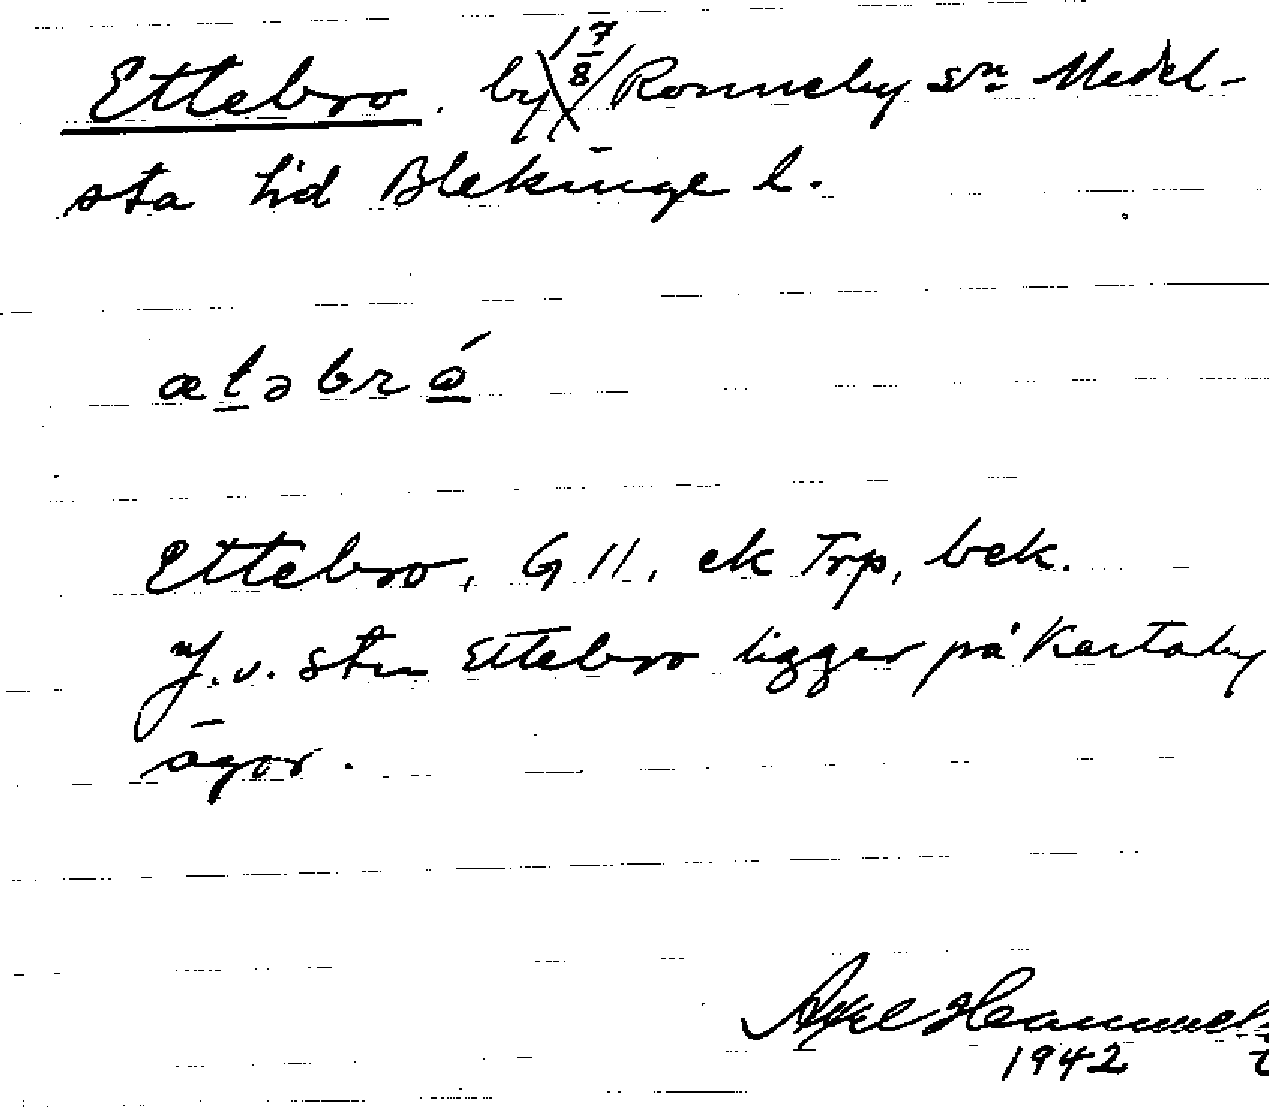 Ettebro. by 1 7/8 Ronneby sn Medel-
sta hd Blekinge l.
ætəbrǿ
Ettebro, G 11, ek Trp, bek.
J. v. Ettebro ligger på Kartaby
ägor.
Axel
1942